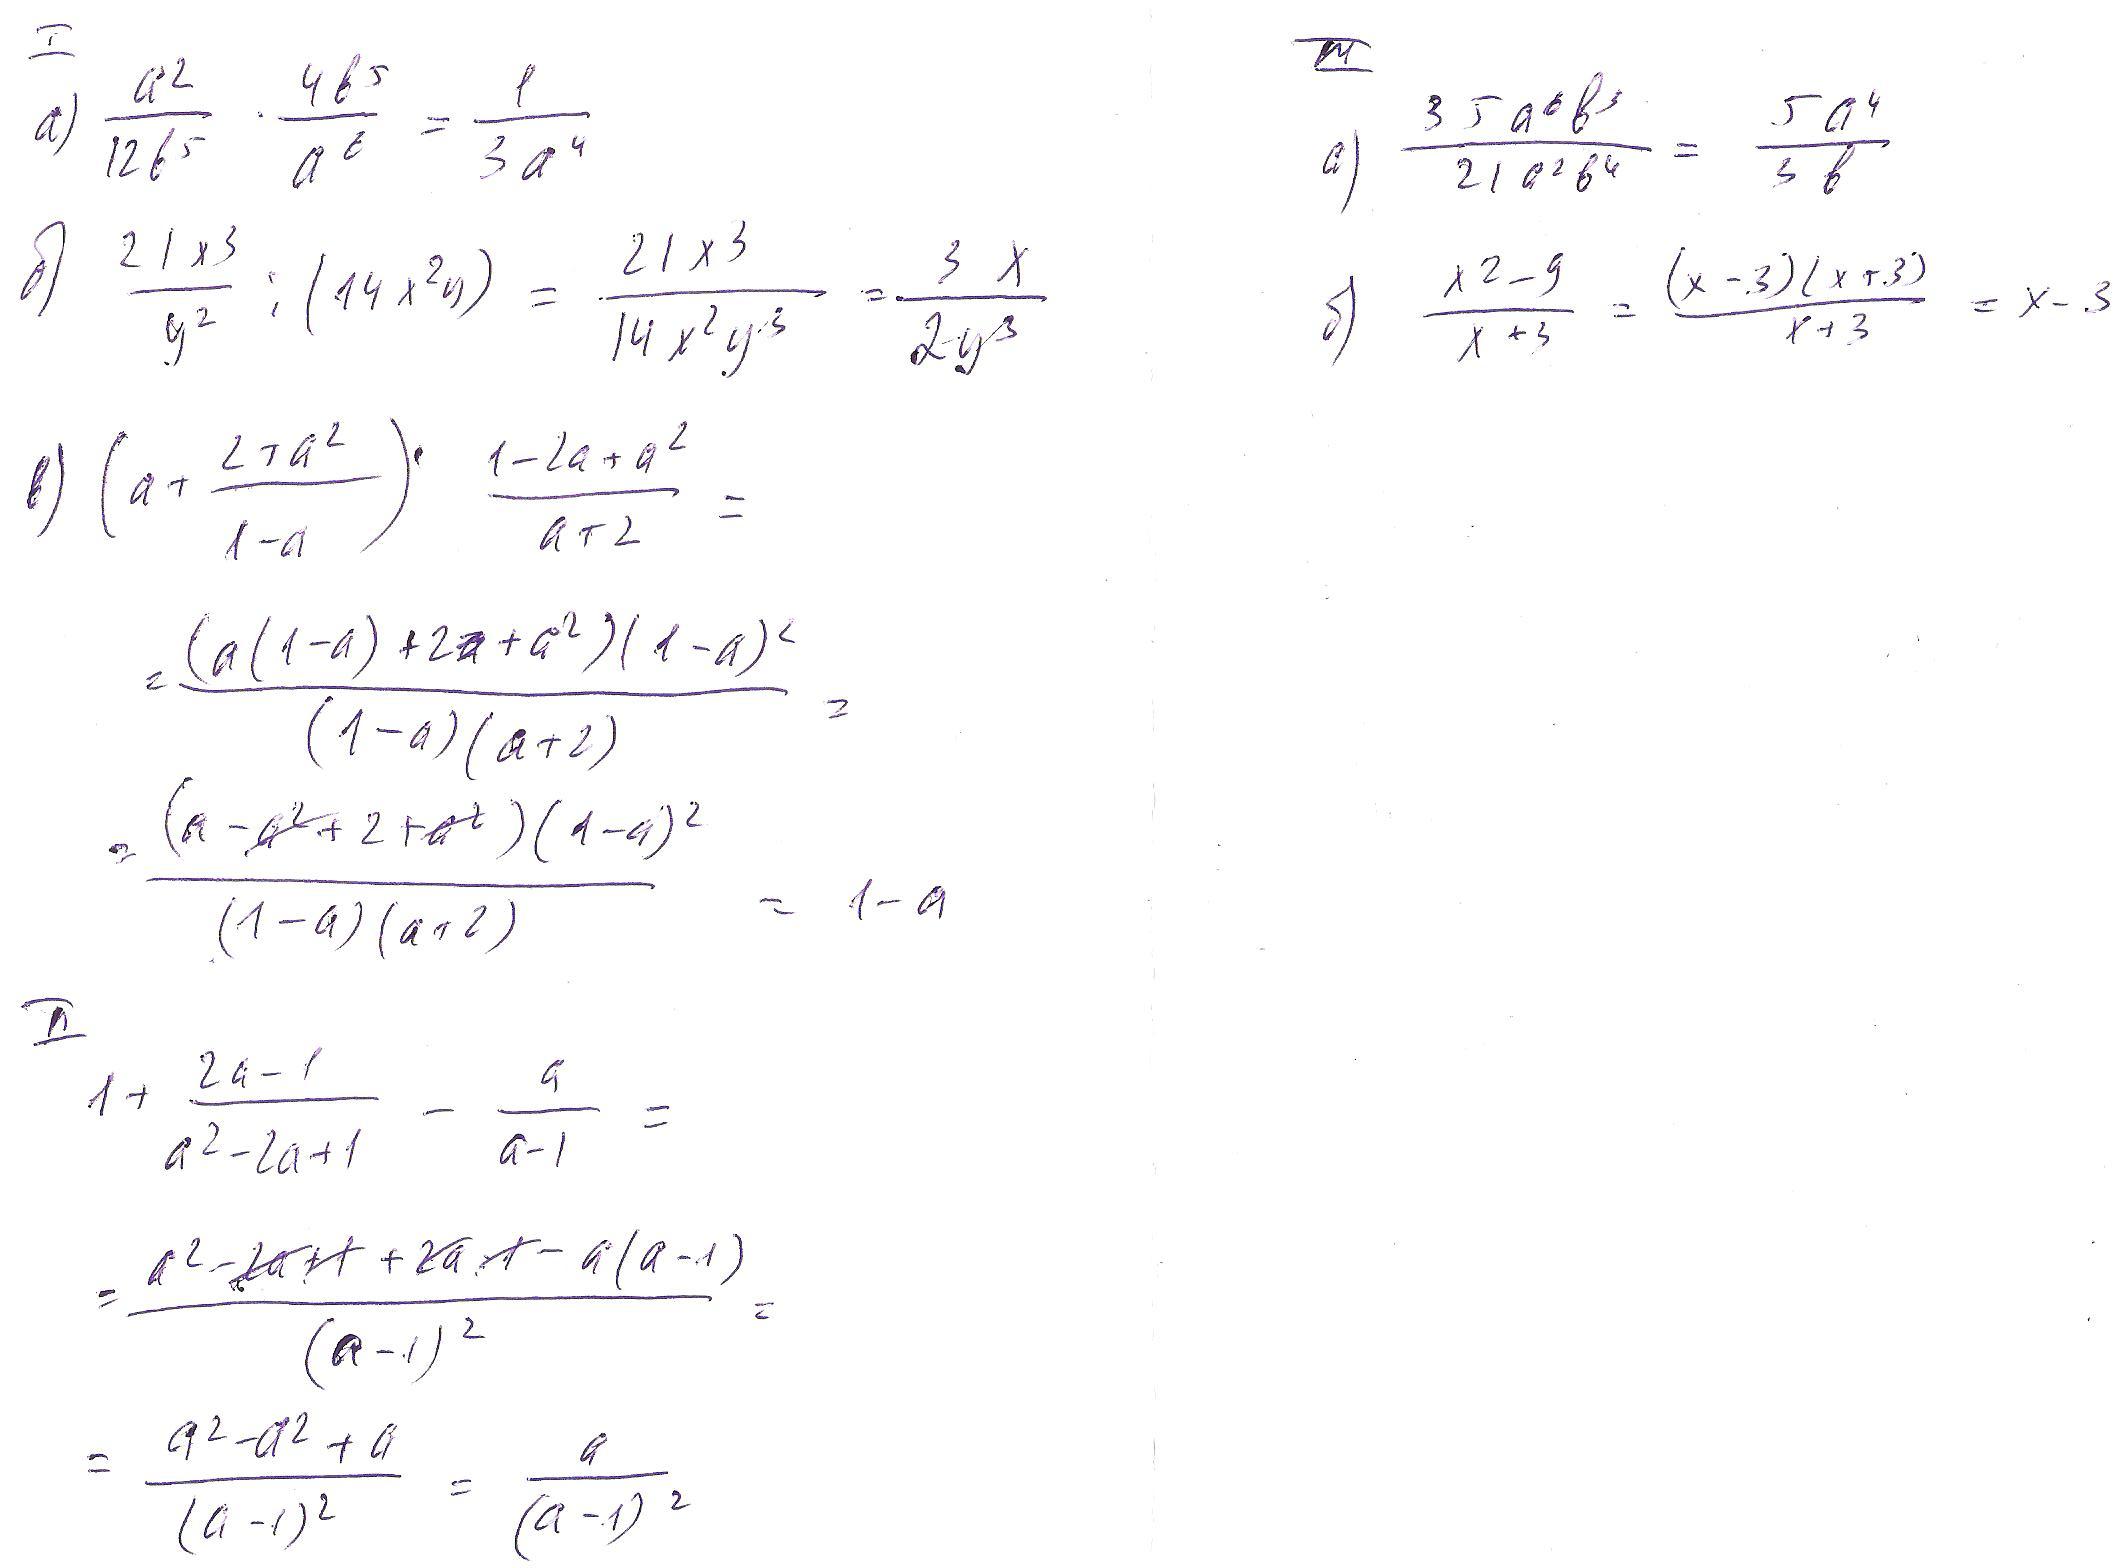 I
а) a²/12b⁵ · 4b⁵/a⁶ = 1/3a⁴
б) 21x³/y² : (14x²y) = 21x³/14x²y³ = 3x/2y³
в) (a + (2+a²)/(1-a)) · (1-2a+a²)/(a+2) =
= (a(1-a)+2+a²)(1-a)²/(1-a)(a+2) =
= (a-a²+2+a²)(1-a)²/(1-a)(a+2) = 1-a
II
1 + (2a-1)/(a²-2a+1) - a/(a-1) =
= (a²-2a+1+2a-1-a(a-1))/(a-1)² =
= (a²-a²+a)/(a-1)² = a/(a-1)²
III
а) 35a⁶b³/21a²b⁴ = 5a⁴/3b
б) (x²-9)/(x+3) = (x-3)(x+3)/(x+3) = x-3